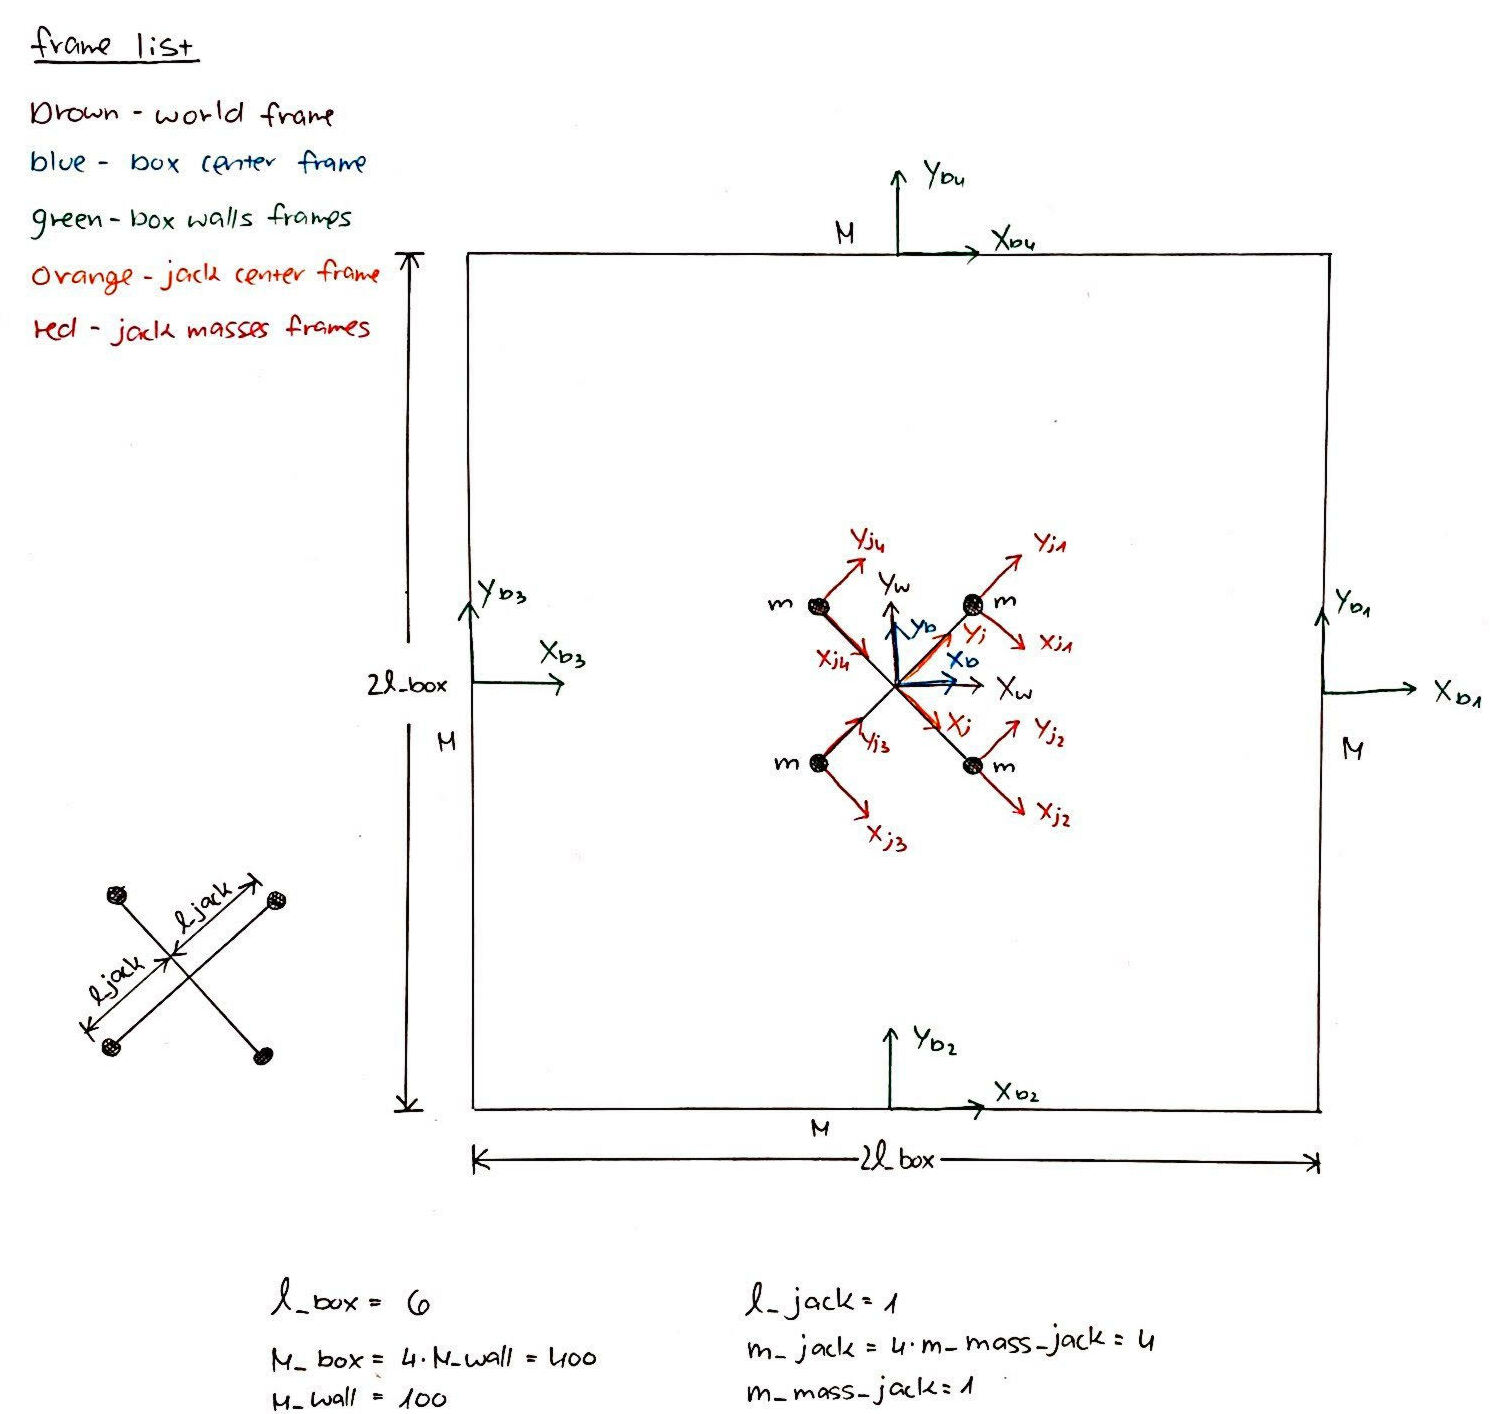 frame list
brown - world frame
blue - box center frame
green - box walls frames
orange - jack center frame
red - jack masses frames
Yb4
M
Xb4
Yj4
Yj1
Yb3
Yw
m
m
Yb1
Xb3
Yb
Yj
Xj1
Xj4
Xb
2l_box
Xw
Xb1
M
Yj3
Xj
Yj2
M
m
m
Xj2
Xj3
l_jack
l_jack
Yb2
Xb2
M
2l_box
l_box = 6
l_jack = 1
M_box = 4·M_wall = 400
m_jack = 4·m_mass_jack = 4
M_wall = 100
m_mass_jack = 1